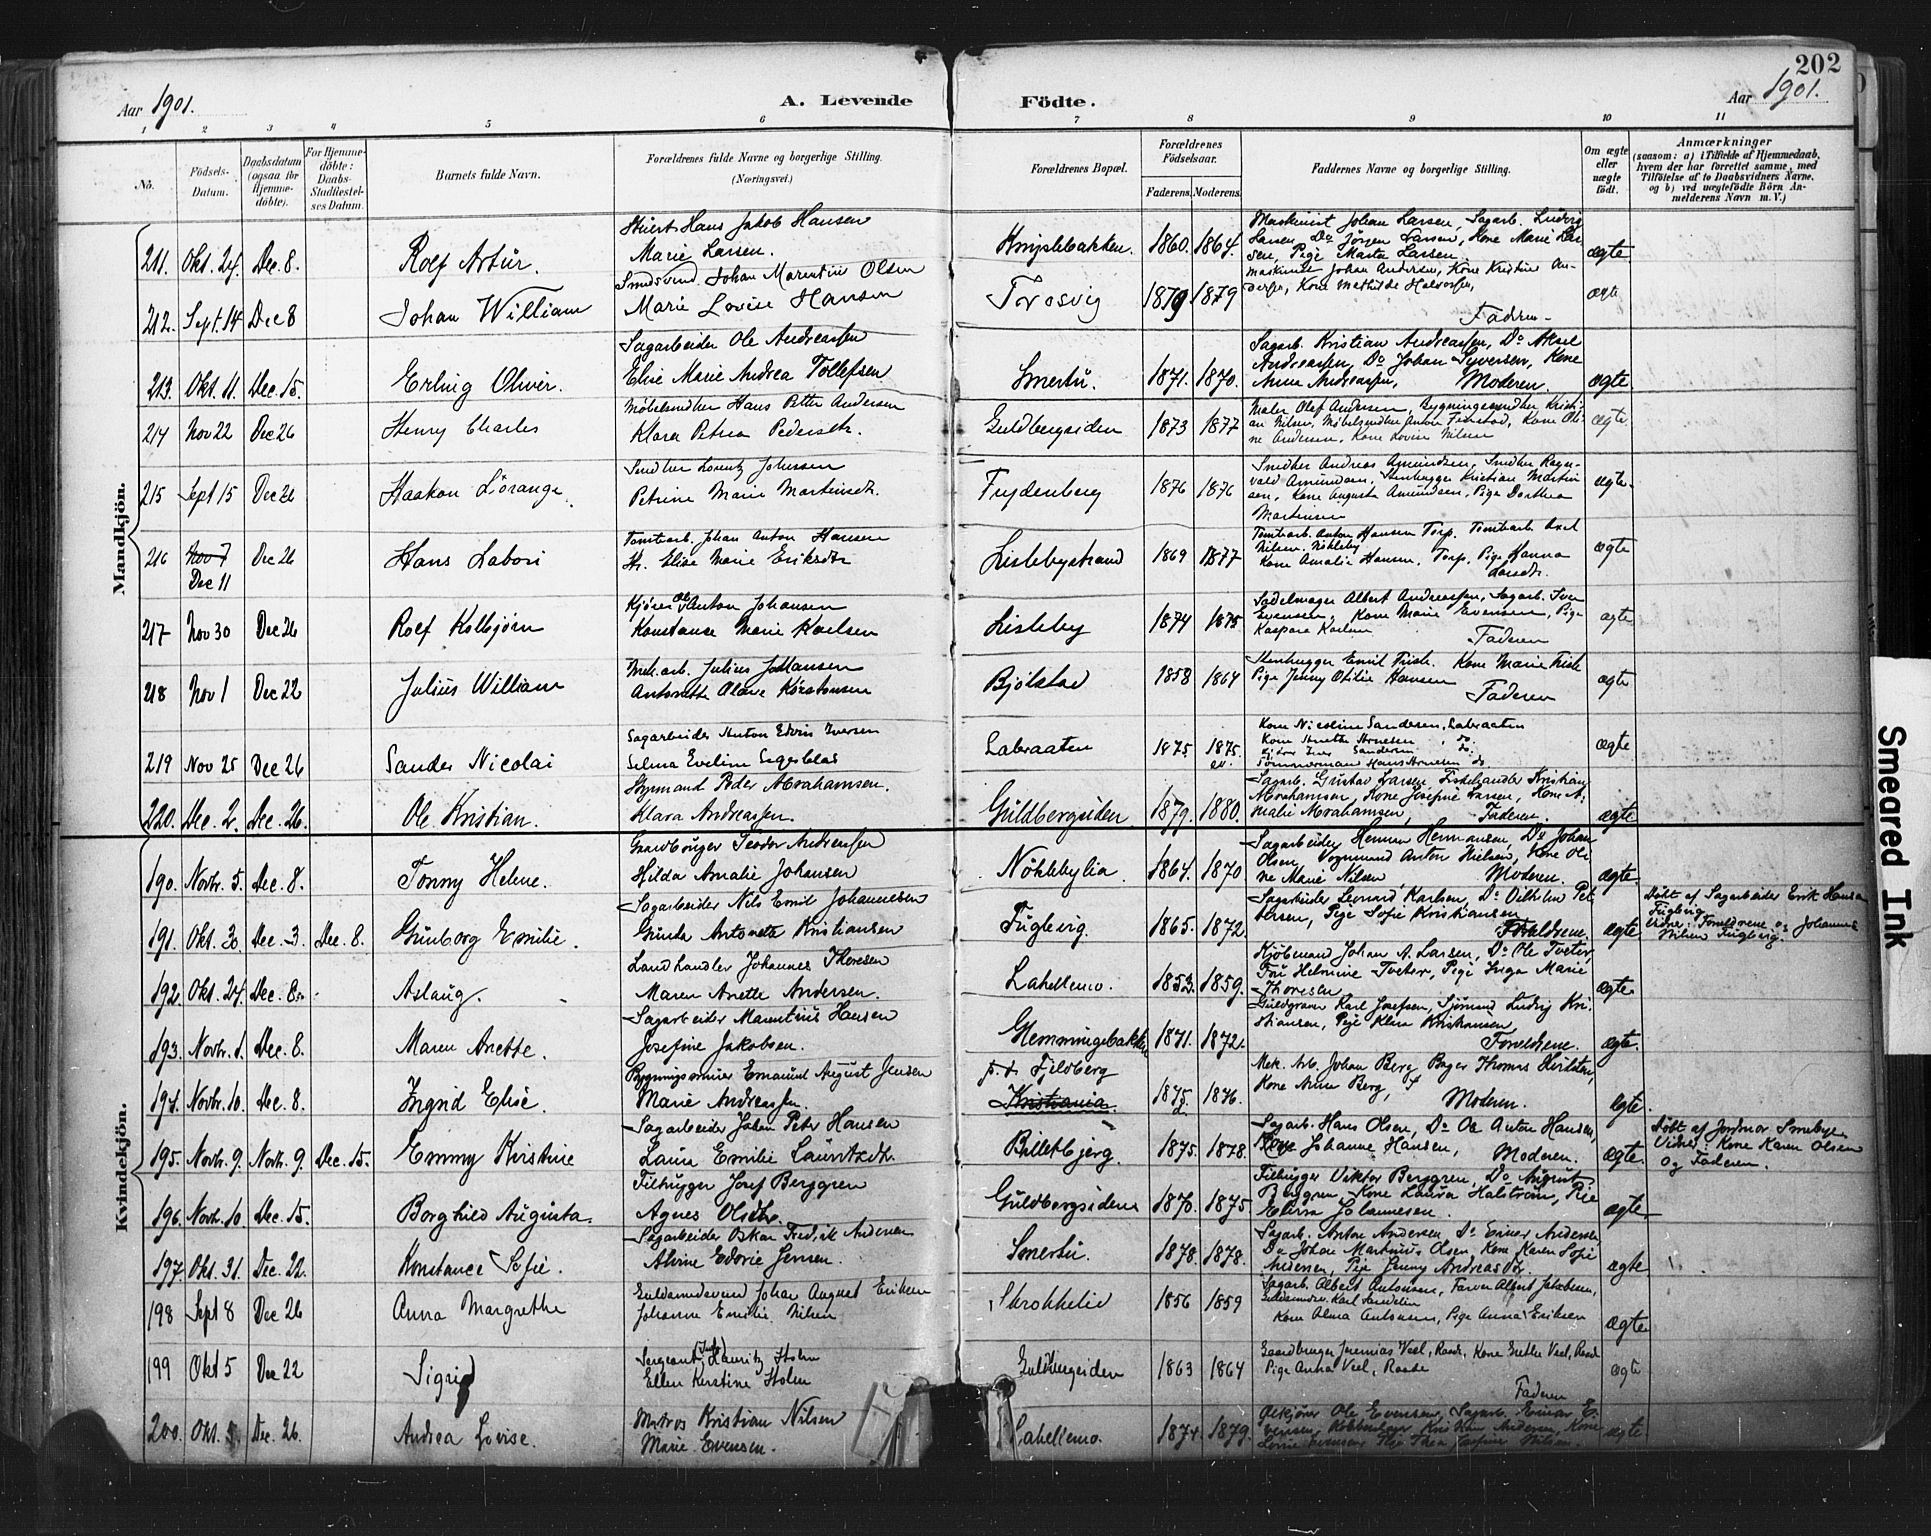 202
Aar 1901.
A. Levende
Födte.
Aar 1901.
1 2 3 4 5 6 7 8 9 10 11
No.
Födsels-Datum.
Daabsdatum (ogsaa for Hjemmedöbte).
For Hjemmedöbte: Daabs-Stadfæstelses Datum.
Barnets fulde Navn.
Forældrenes fulde Navne og borgerlige Stilling. (Næringsvei.)
Forældrenes Bopæl.
Forældrenes Födselsaar.
Faderens. Moderens.
Faddernes Navne og borgerlige Stilling.
Om ægte eller uægte födt.
Anmærkninger
(saasom: a) i Tilfælde af Hjemmedaab, hvem der har forrettet samme, med Tilföielse af to Daabsvidners Navne, og b) ved uægtefödte Börn Anmelderens Navn m. V.)
Mandkjön.
211. Okt. 24. Dec. 8. Rolf Artur. Hans Jakob Hansen
Marie Larsen. 1860. 1864. Maskinist Johan Larsen, Sagarb. Ludvig
Larsen, Do Jörgen Larsen, Kone Marie Larsen, Pige Marta Larsen. ægte
212. Sept. 14 Dec 8 Johan William Smedsvend Johan Marentius Olsen
Marie Lovise Hansen Torosvig 1879 1879 Maskinist Johan Andersen, Kone Kristine Andersen, Kone Mathilde Halvorsen, Faderen ægte
213. Okt. 11. Dec. 15. Erling Oliver. Sagarbeider Ole Andreassen
Elise Marie Andrea Tollefsen Smertu. 1871. 1870. Sagarb. Kristian Andreassen, Do Aksel
Andreassen, Do Johan Syversen, Kone
Anna Andreassen, Moderen. ægte
214 Nov 22 Dec 26 Henry Charles Möbelsnedker Hans Petter Andersen
Klara Petrea Pedersdtr. Guldbergsiden 1873 1877 Maler Olaf Andersen, Bygningssnedker Kristian Nilsen, Möbelsnedker Anton Finstad, Kone Oline Andersen, Kone Lovise Nilsen ægte
215 Sept 15 Dec 26 Haakon Lörange. Snedker Lorentz Johnsen
Petrine Marie Martinsdtr. Frydenberg 1876 1876 Snedker Andreas Amundsen, Snedker Ragnvald Amundsen, Stenhugger Kristian Martinsen, Kone Augusta Amundsen, Pige Dorthea
Martinsen ægte
216 Nov 7
Dec 11 Dec 26 Hans Labori Tomtearb. Johan Anton Hansen
H. Elise Marie Eriksdtr Lislebystrand 1869 1877 Tomtearb. Anton Hansen Torp. Tomtearb. Axel
Nilsen. Nökleby
Kone Amalie Hansen, Torp, Pige Hanna
Larsdtr. ægte
217 Nov 30 Dec 26 Rolf Kolbjörn Kjörer Ole Anton Johansen
Konstanse Marie Karlsen Lisleby 1874 1875 Sadelmager Albert Andreassen, Sagarb. Iver
Evensen, Kone Marie Evensen, Pige
Kaspara Karlsen Faderen ægte
218 Nov 1 Dec 22 Julius William Mek. arb. Julius Johansen
Antonette Olave Körstensen Bjölstad 1858 1864 Stenhugger Emil Fisk. Kone Marie Fisk
Pige Jenny Otilie Hansen Faderen ægte
219 Nov 25 Dec 26 Sander Nicolai Sagarbeider Anton Edvin Iversen
Selma Eveline Segerblad Labraaten 1875. 1875. Kone Nicoline Sandersen, Labraaten
Kone Anette Arnesen do.
Kjörer Iver Sandersen do.
Tömmermand Hans Arnesen do ægte
220. Dec. 2. Dec. 26. Ole Kristian. Styrmand Peder Abrahamsen.
Klara Andreassen. Guldbergsiden 1879. 1880. Sagarb. Gustav Larsen Fiskehandler Kristian
Abrahamsen, Kone Josefine Larsen, Kone Amalie Abrahamsen, Faderen. ægte
Kvindekjön.
190. Novbr. 5. Dec. 8. Tonny Helene. Gaardbruger Teodor Andreassen
Hilda Amalie Johansen Nöklebylia 1864. 1870 Sagarbeider Herman Hermansen Do Johan
Olsen, Vognmand Anton Nielsen, Kone Oline Marie Nilsen Moderen. ægte.
191. Okt. 30. Dec. 3. Dec. 8. Gunborg Emilie. Sagarbeider Nils Emil Johannesen
Gunda Antonette Kristiansen Fuglevig. 1865. 1872. Sagarbeider Leonard Karlsen, Do Vilhelm Pettersen, Pige Sofie Kristiansen
Forældrene. ægte Döbt af Sagarbeider Erik Hansen
Fuglevig
Vidner: Forældrene og Johannes
Nilsen Fuglevig.
192. Okt. 24. Dec. 8. Aslaug. Landhandler Johannes Thoresen
Maren Anette Andersen. Lahellemo. 1853. 1859. Kjöbmand Johan A. Larsen, Do Ole Tveter,
Fru Helmine Tveter, Pige Inga Marie
Thoresen ægte.
193. Novbr. 1. Dec. 8. Maren Anette. Sagarbeider Marentius Hansen
Josefine Jakobsen. Glemmingebakken 1871. 1872. Guldgraver Karl Josefsen, Sjömand Ludvig Kristiansen, Pige Klara Kristiansen,
Forældrene. ægte.
194. Novbr. 10. Dec. 8. Ingrid Elise. Bygningssnider Emanuel August Jensen
Marie Andreassen. p. t. Fjeldberg
Kristiania. 1875. 1876. Mek. Arb. Johan Berg Bager Thomas
Kone Anna Berg, Moderen. ægte.
195. Novbr. 9. Novbr. 9. Dec. 15. Emmy Kristine Sagarbeider Johan Peter Hansen
Laura Emilie Lauritzdtr. Billetbjerg. 1875. 1878. Sagarb. Hans Olsen, Do Ole Anton Hansen,
Kone Johanne Hansen, Moderen. ægte. Döbt af Jordmor
Vidner: Kone Karen Olsen
og Faderen.
196. Novbr. 10 Dec. 15. Borghild Augusta. Filhugger Josef Berggren
Agnes Olsdtr. Guldbergsiden 1870. 1875. Filhugger Viktor Berggren, Do August
Berggren, Kone Laura Halström, Pige
Elina Johannesen. ægte
197. Okt. 31. Dec. 22. Konstance Sofie. Sagarbeider Oskar Fredrik Andersen
Alvine Edorie Jensen. Smertu. 1878. 1878. Sagarb. Anton Andersen Do Einar Andersen,
Do Johan Martinius Olsen, Kone Karen Sofie
Andersen, Pige Jenny Andreasdtr. ægte
198 Sept 8 Dec 26 Anna Margrethe Guldsmedsvend Johan August Eriksen
Johanne Emilie Nilsen Skrokkelid 1856 1859 Sagarb. Albert Antonsen, Farver Albert Jakobsen,
Guldsmedsv. Karl Sandelin
Kone Alma Antonsen, Pige Anna Eriksen ægte
199 Okt 5 Dec 22 Sigrid Sergeant Lauritz Holm
Ellen Kerstine Holm Guldbergsiden 1863 1864 Gaardbruger Jeremias Vesl, Raade, Kone Grethe Vesl, Raade
Pige Anna Vesl, Raade
Faderen ægte
200. Okt. 5. Dec. 26. Andrea Lovise. Matros Kristian Nilsen
Marie Evensen. Lahellemo. 1874. 1879. Ölkjörer Ole Evensen, Sagarb. Einar Evensen, Kristian Andersen, Kone
Lovise Evensen, Pige Thea Josefine Nilsen. ægte
Smeared Ink